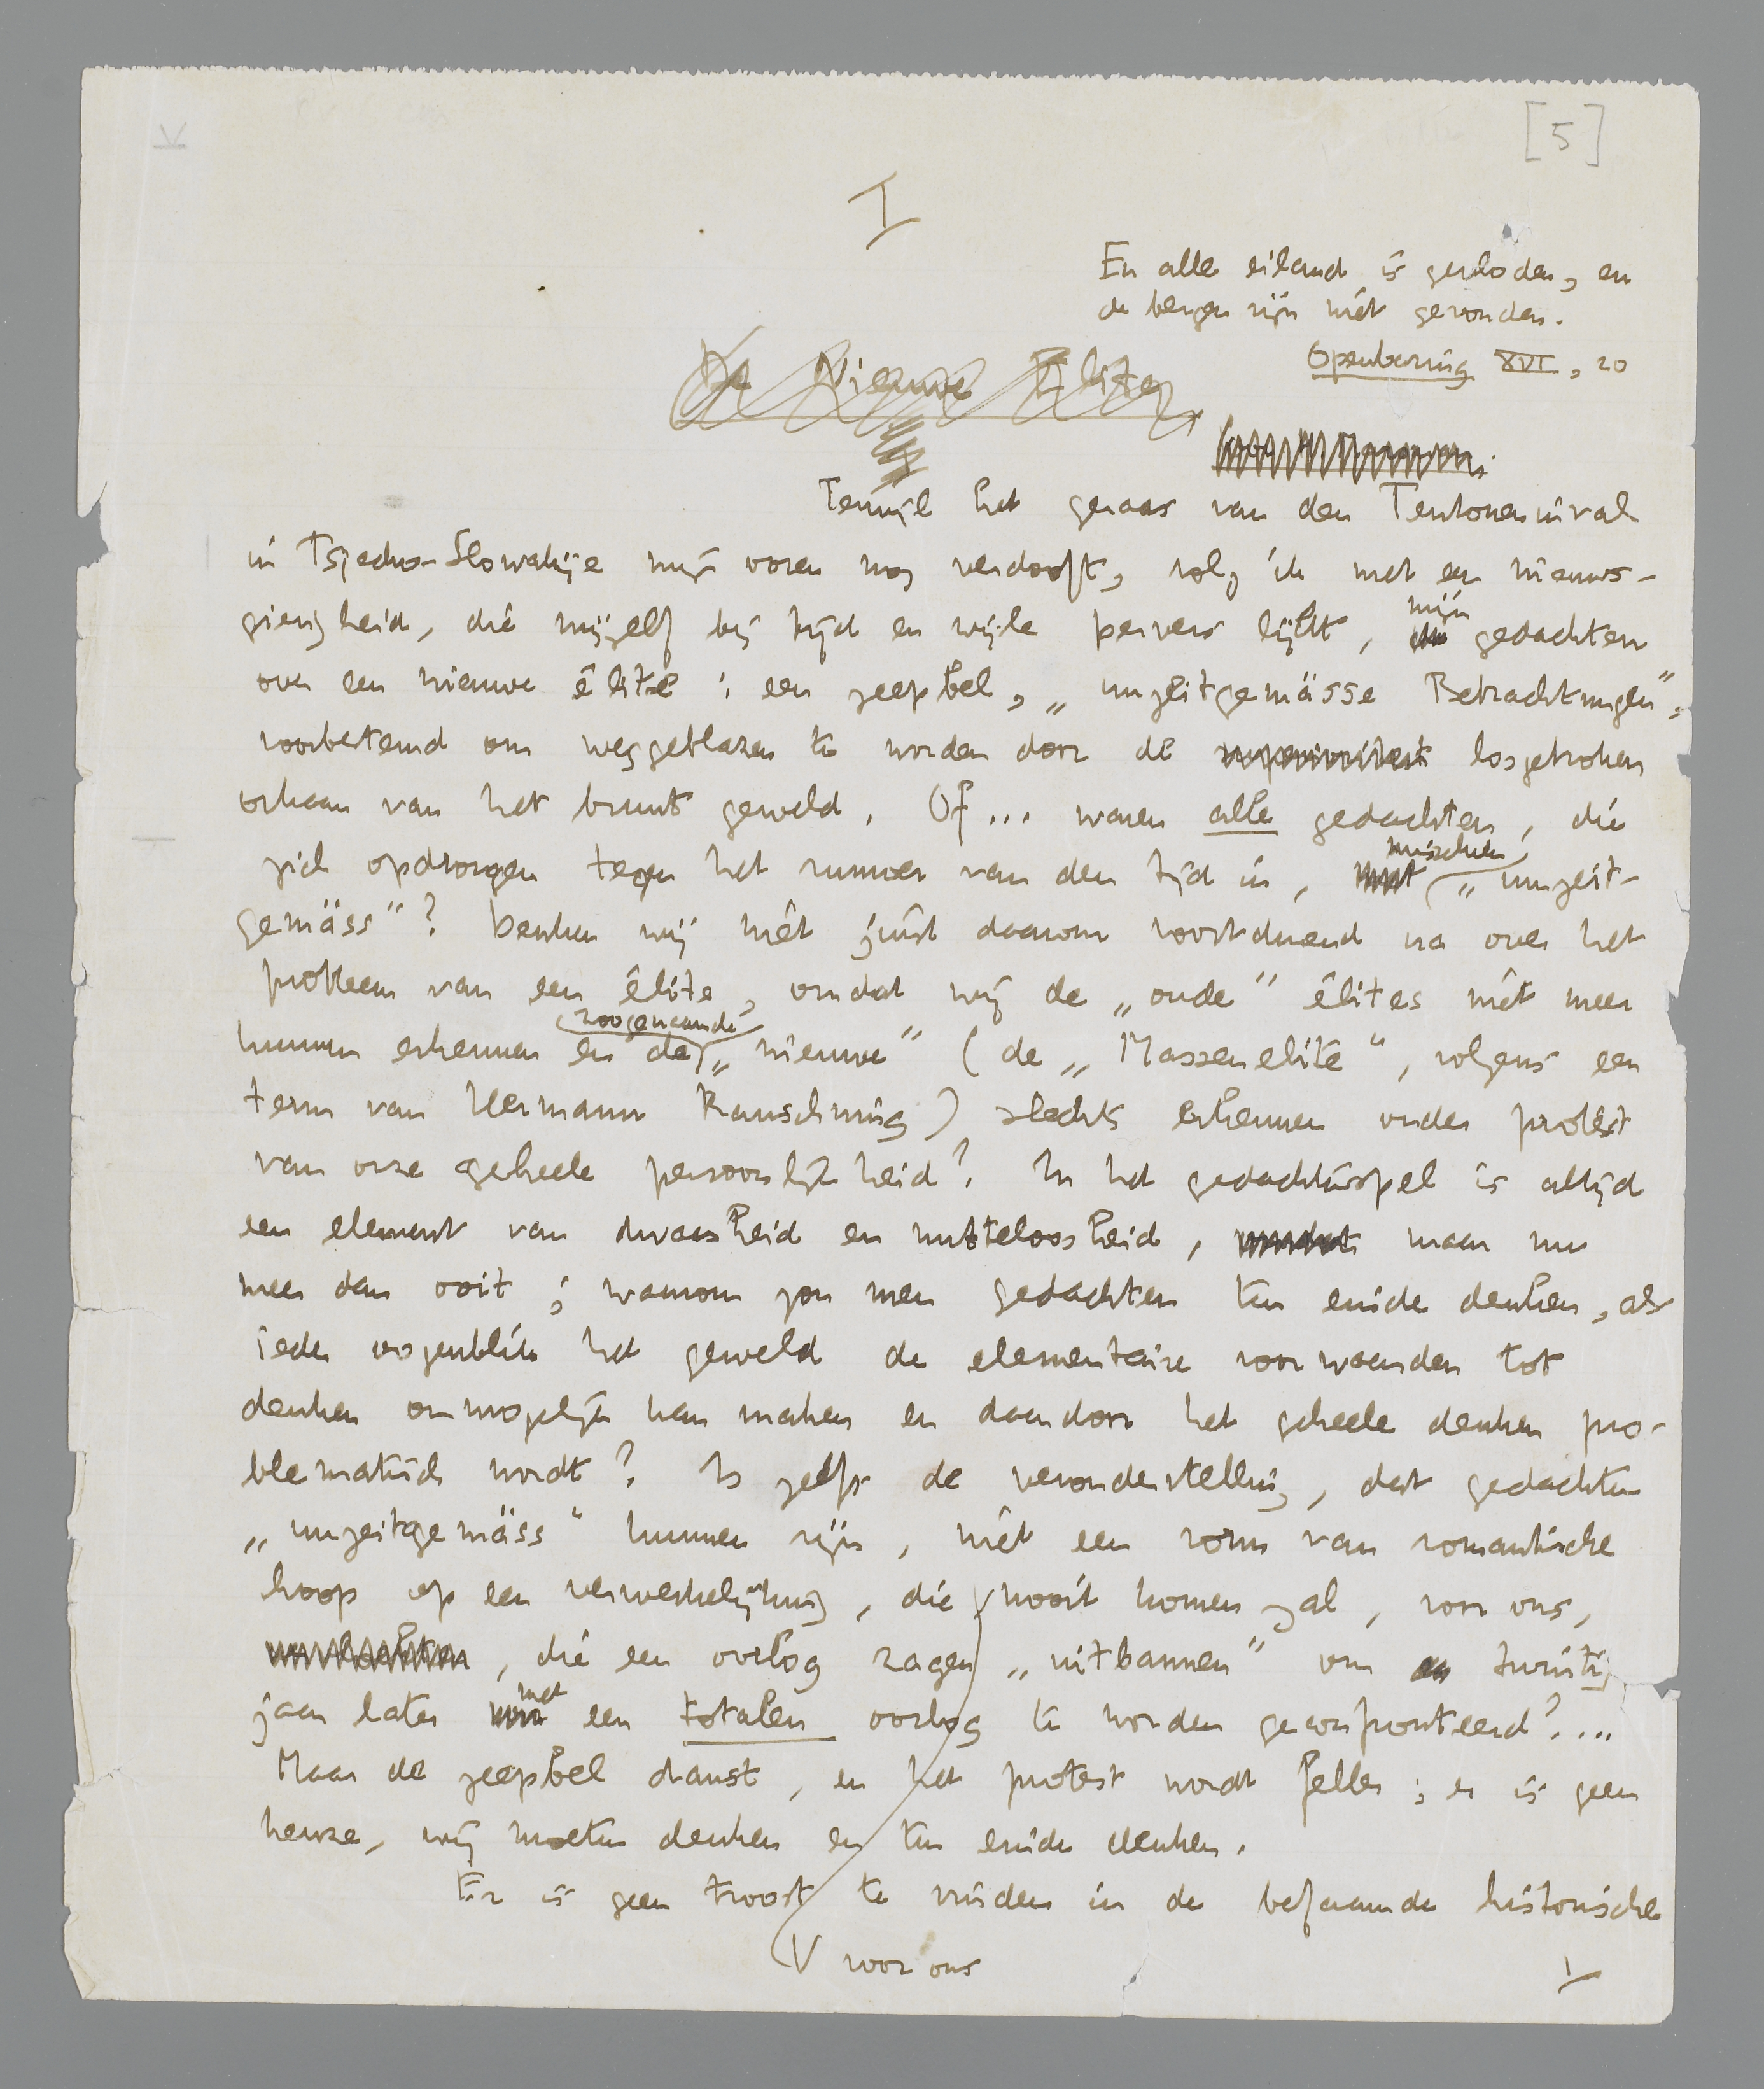 [5]
I
En alle eiland is gevloden, en
de bergen zijn niet gevonden.
Openbaring XVI, 20
De Nieuwe Elite
Terwijl het geraas van den Teutoneninval
in Tsjecho-Slowakije mijn ooren nog verdooft, volg ik met een nieuws-
gierigheid, die mijzelf bij tijd en wijle pervers lijkt, mijn gedachten
over een nieuwe élite: een zeepbel, „unzeitgemässe Betrachtungen”,
voorbestemd om weggeblazen te worden door de losgebroken
orkaan van het bruut geweld. Of... waren alle gedachten, die
zich opdrongen tegen het rumoer van den tijd in, misschien „unzeit-
gemäss”? Denken wij niet juist daarom voortdurend na over het
probleem van een élite, omdat wij de „oude” élites niet meer
kunnen erkennen en de zoogenaamde „nieuwe” (de „Massenelite”, volgens een
term van Hermann Rauschning) slechts erkennen onder protest
van onze geheele persoonlijkheid? In het gedachtenspel is altijd
een element van dwaasheid en nutteloosheid, maar nu
meer dan ooit; waarom zou men gedachten ten einde denken, als
ieder oogenblik het geweld de elementaire voorwaarden tot
denken onmogelijk kan maken en daardoor het geheele denken pro-
blematisch wordt? Is zelfs de veronderstelling, dat gedachten
„unzeitgemäss” kunnen zijn, niet een vorm van romantische
hoop op een verwerkelijking, die nooit komen zal, voor ons,
, die een oorlog zagen „uitbannen” om twintig
jaar later met een totalen oorlog te worden geconfronteerd?...
Maar de zeepbel danst, en het protest wordt feller; er is geen
keuze, wij moeten denken en ten einde denken.
Er is geen troost te vinden in de befaamde historische
V voor ons
1